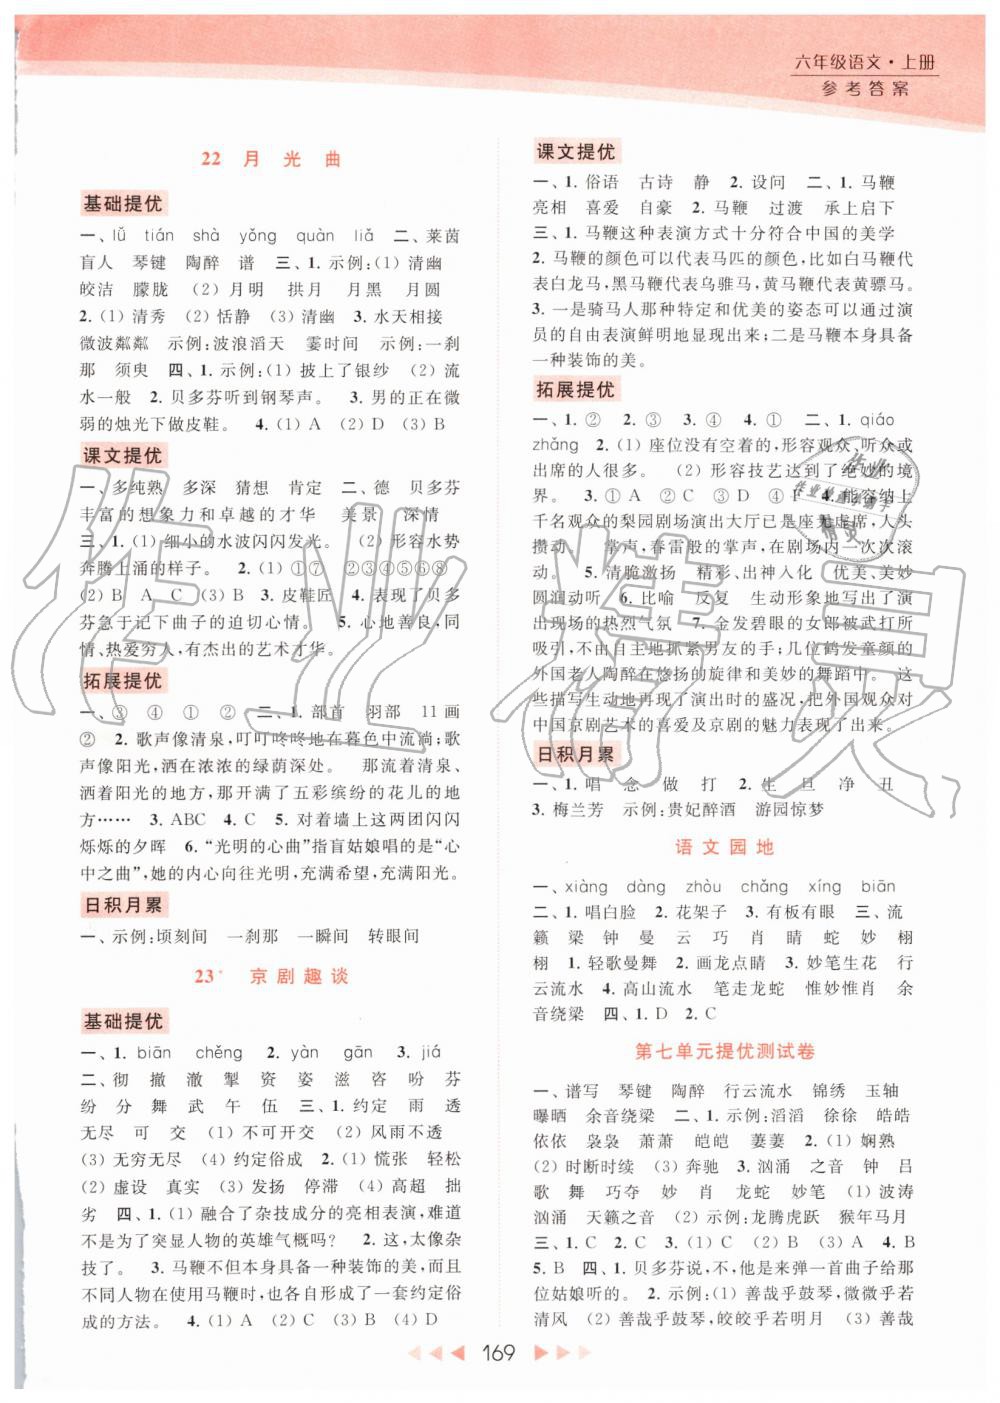 六年级语文·上册
参考答案
22 月光曲
基础提优
一、lǔ tián shà yǒng quàn liǎ 二、莱茵
盲人 琴键 陶醉 谱 三、1. 示例:(1) 清幽
皎洁 朦胧 (2) 月明 拱月 月黑 月圆
2. (1) 清秀 (2) 恬静 (3) 清幽 3. 水天相接
微波粼粼 示例:波浪滔天 霎时间 示例:一刹
那 须臾 四、1. 示例:(1) 披上了银纱 (2) 流
水一般 2. 贝多芬听到钢琴声。 3. 男的正在微
弱的烛光下做皮鞋。 4. (1) A (2) D (3) B
课文提优
一、多纯熟 多深 猜想 肯定 二、德 贝多芬
丰富的想象力和卓越的才华 美景 深情
三、1. (1) 细小的水波闪闪发光。 (2) 形容水势
奔腾上涌的样子。 2. (1) ①⑦ ②③④⑤⑥⑧
(2) B A C (3) B 3. 皮鞋匠 4. 表现了贝多
芬急于记下曲子的迫切心情。 5. 心地善良,同
情、热爱穷人,有杰出的艺术才华。
拓展提优
一、③ ④ ① ② 二、1. 部首 羽部 11画
② 2. 歌声像清泉,叮叮咚咚地在暮色中流淌;歌
声像阳光,洒在浓浓的绿荫深处。 那流着清泉、
洒着阳光的地方,便开满了五彩缤纷的花儿的地
方…… 3. ABC 4. C 5. 对着墙上这两团闪闪
烁烁的夕晖 6. “光明的心曲”指盲姑娘唱的是“心
中之曲”,她的内心往光明,充满希望,充满阳光。
日积月累
一、示例:顷刻间 一刹那 一瞬间 转眼间
23* 京剧趣谈
基础提优
一、1. biān chěng 2. yàn gān 3. jiá
二、彻 撤 澈 掣 资 姿 滋 咨 吩 芬
纷 分 舞 武 午 伍 三、1. 约定 雨 透
无尽 可 交 (1) 不可开交 (2) 风雨不透
(3) 无穷无尽 (4) 约定俗成 2. (1) 慌张 轻松
(2) 虚设 真实 (3) 发扬 停滞 (4) 高超 拙
劣 四、1. (1) 融合了杂技成分的亮相表演,难道
不是为了突显人物的英雄气概吗? 2. 这,太像杂
技了。 3. 马鞭不但本身具备一种装饰的美,而且
不同人物在使用马鞭时,也各自形成了一套约定俗
成的方法。 4. (1) A (2) C (3) B (4) D
课文提优
一、1. 俗语 古诗 静 2. 设问 二、1. 马鞭
亮相 喜爱 自豪 2. 马鞭 过渡 承上启下
三、1. 马鞭这种表演方式十分符合中国的美学
2. 马鞭的颜色可以代表马匹的颜色,比如白马鞭代
表白龙马,黑马鞭代表乌骓马,黄马鞭代表黄骠马。
3. 一是骑马人那种特定和优美的姿态可以通过演
员的自由表演鲜明地显现出来;二是马鞭本身具备
一种装饰的美。
拓展提优
一、1. ② 2. ③ 3. ④ 4. ① 二、1. qiáo
zhǎng 2. (1) 座位没有空着的,形容观众、听众或
出席的人很多。 (2) 形容技艺达到了绝妙的境
界。 3. ① A ② C ③ D ④ B 4. 能容纳上
千名观众的梨园剧场演出大厅已是座无虚席,人头
攒动。 掌声,春雷般的掌声,在剧场内一次次滚
动。 5. 清脆激扬 精彩、出神入化 优美、美妙
圆润动听 6. 比喻 反复 生动形象地写出了演
出现场的热烈气氛 7. 金发碧眼的女郎被武打所
吸引,不由自主地抓紧男友的手;几位鹤发童颜的
外国老人陶醉在悠扬的旋律和美妙的舞蹈中。 这
些描写生动地再现了演出时的盛况,把外国观众对
中国京剧艺术的喜爱及京剧的魅力表现了出来。
日积月累
一、1. 唱 念 做 打 2. 生 旦 净 丑
3. 梅兰芳 示例:贵妃醉酒 游园惊梦
语文园地
一、xiàng dàng zhòu chǎng xíng biān
二、1. 唱白脸 2. 花架子 3. 有板有眼 三、流
籁 梁 钟 曼 云 巧 肖 睛 蛇 妙 栩
栩 1. 轻歌曼舞 2. 画龙点睛 3. 妙笔生花 行
云流水 4. 高山流水 笔走龙蛇 惟妙惟肖 余
音绕梁 四、1. D 2. C
第七单元提优测试卷
一、谱写 琴键 陶醉 行云流水 锦绣 玉轴
曝晒 余音绕梁 二、1. 示例:滔滔 徐徐 皓皓
依依 袅袅 萧萧 皑皑 萋萋 2. (1) 娴熟
(2) 时断时续 (3) 奔驰 3. 汹涌 之音 钟 吕
歌 舞 巧夺 妙 肖 龙蛇 妙笔 (1) 波涛
汹涌 天籁之音 (2) 示例:龙腾虎跃 猴年马月
三、1. C 2. C 3. (1) C (2) D (3) A 4. B
5. B 四、1. 贝多芬说,他是来弹一首曲子给那
位姑娘听的。 2. 示例:(1) 善哉乎鼓琴,微微乎若
清风 (2) 善哉乎鼓琴,皎皎乎若明月 (3) 善哉
169
作业精灵